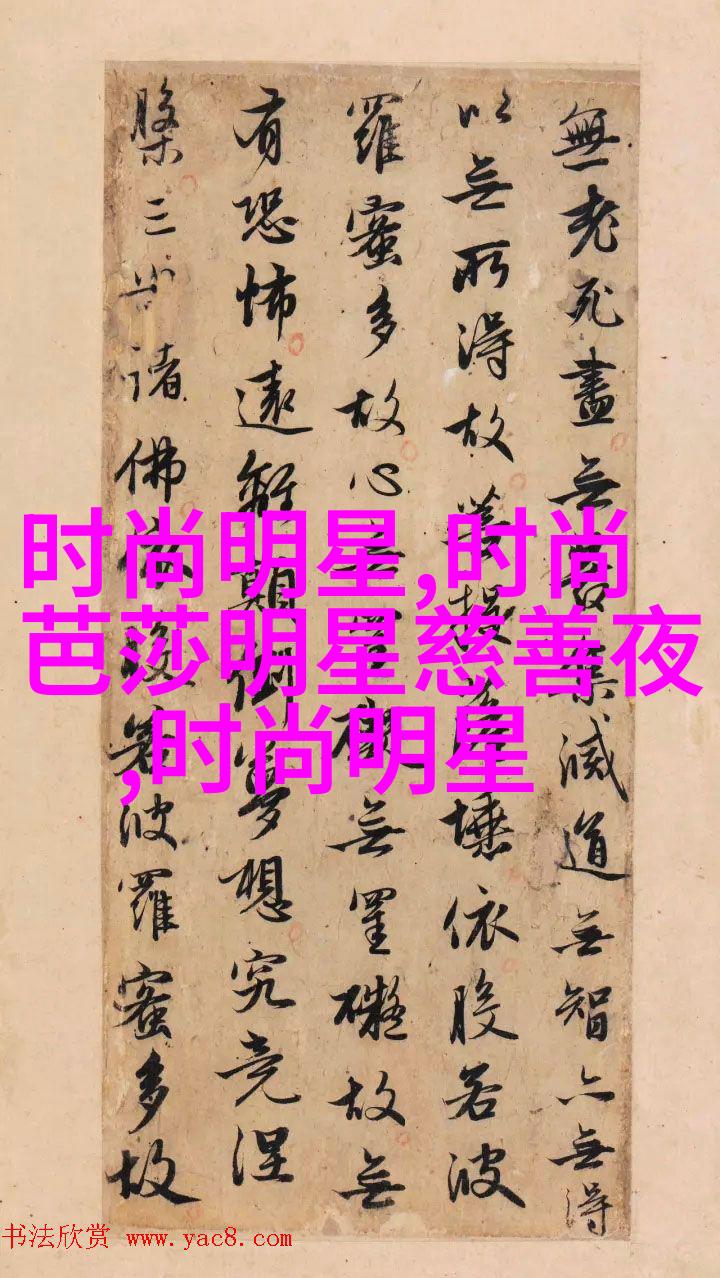 無老死盡无苦集滅道无智亦无得
以无所得故菩提薩埵依般若波
羅蜜多故心无罣礙无罣礙故无
有恐怖遠離顛倒夢想究竟涅
槃三世諸佛依般若波羅蜜多故
时尚明星,时尚
芭莎明星慈善夜
,时尚明星
书法欣赏 www.yac8.com